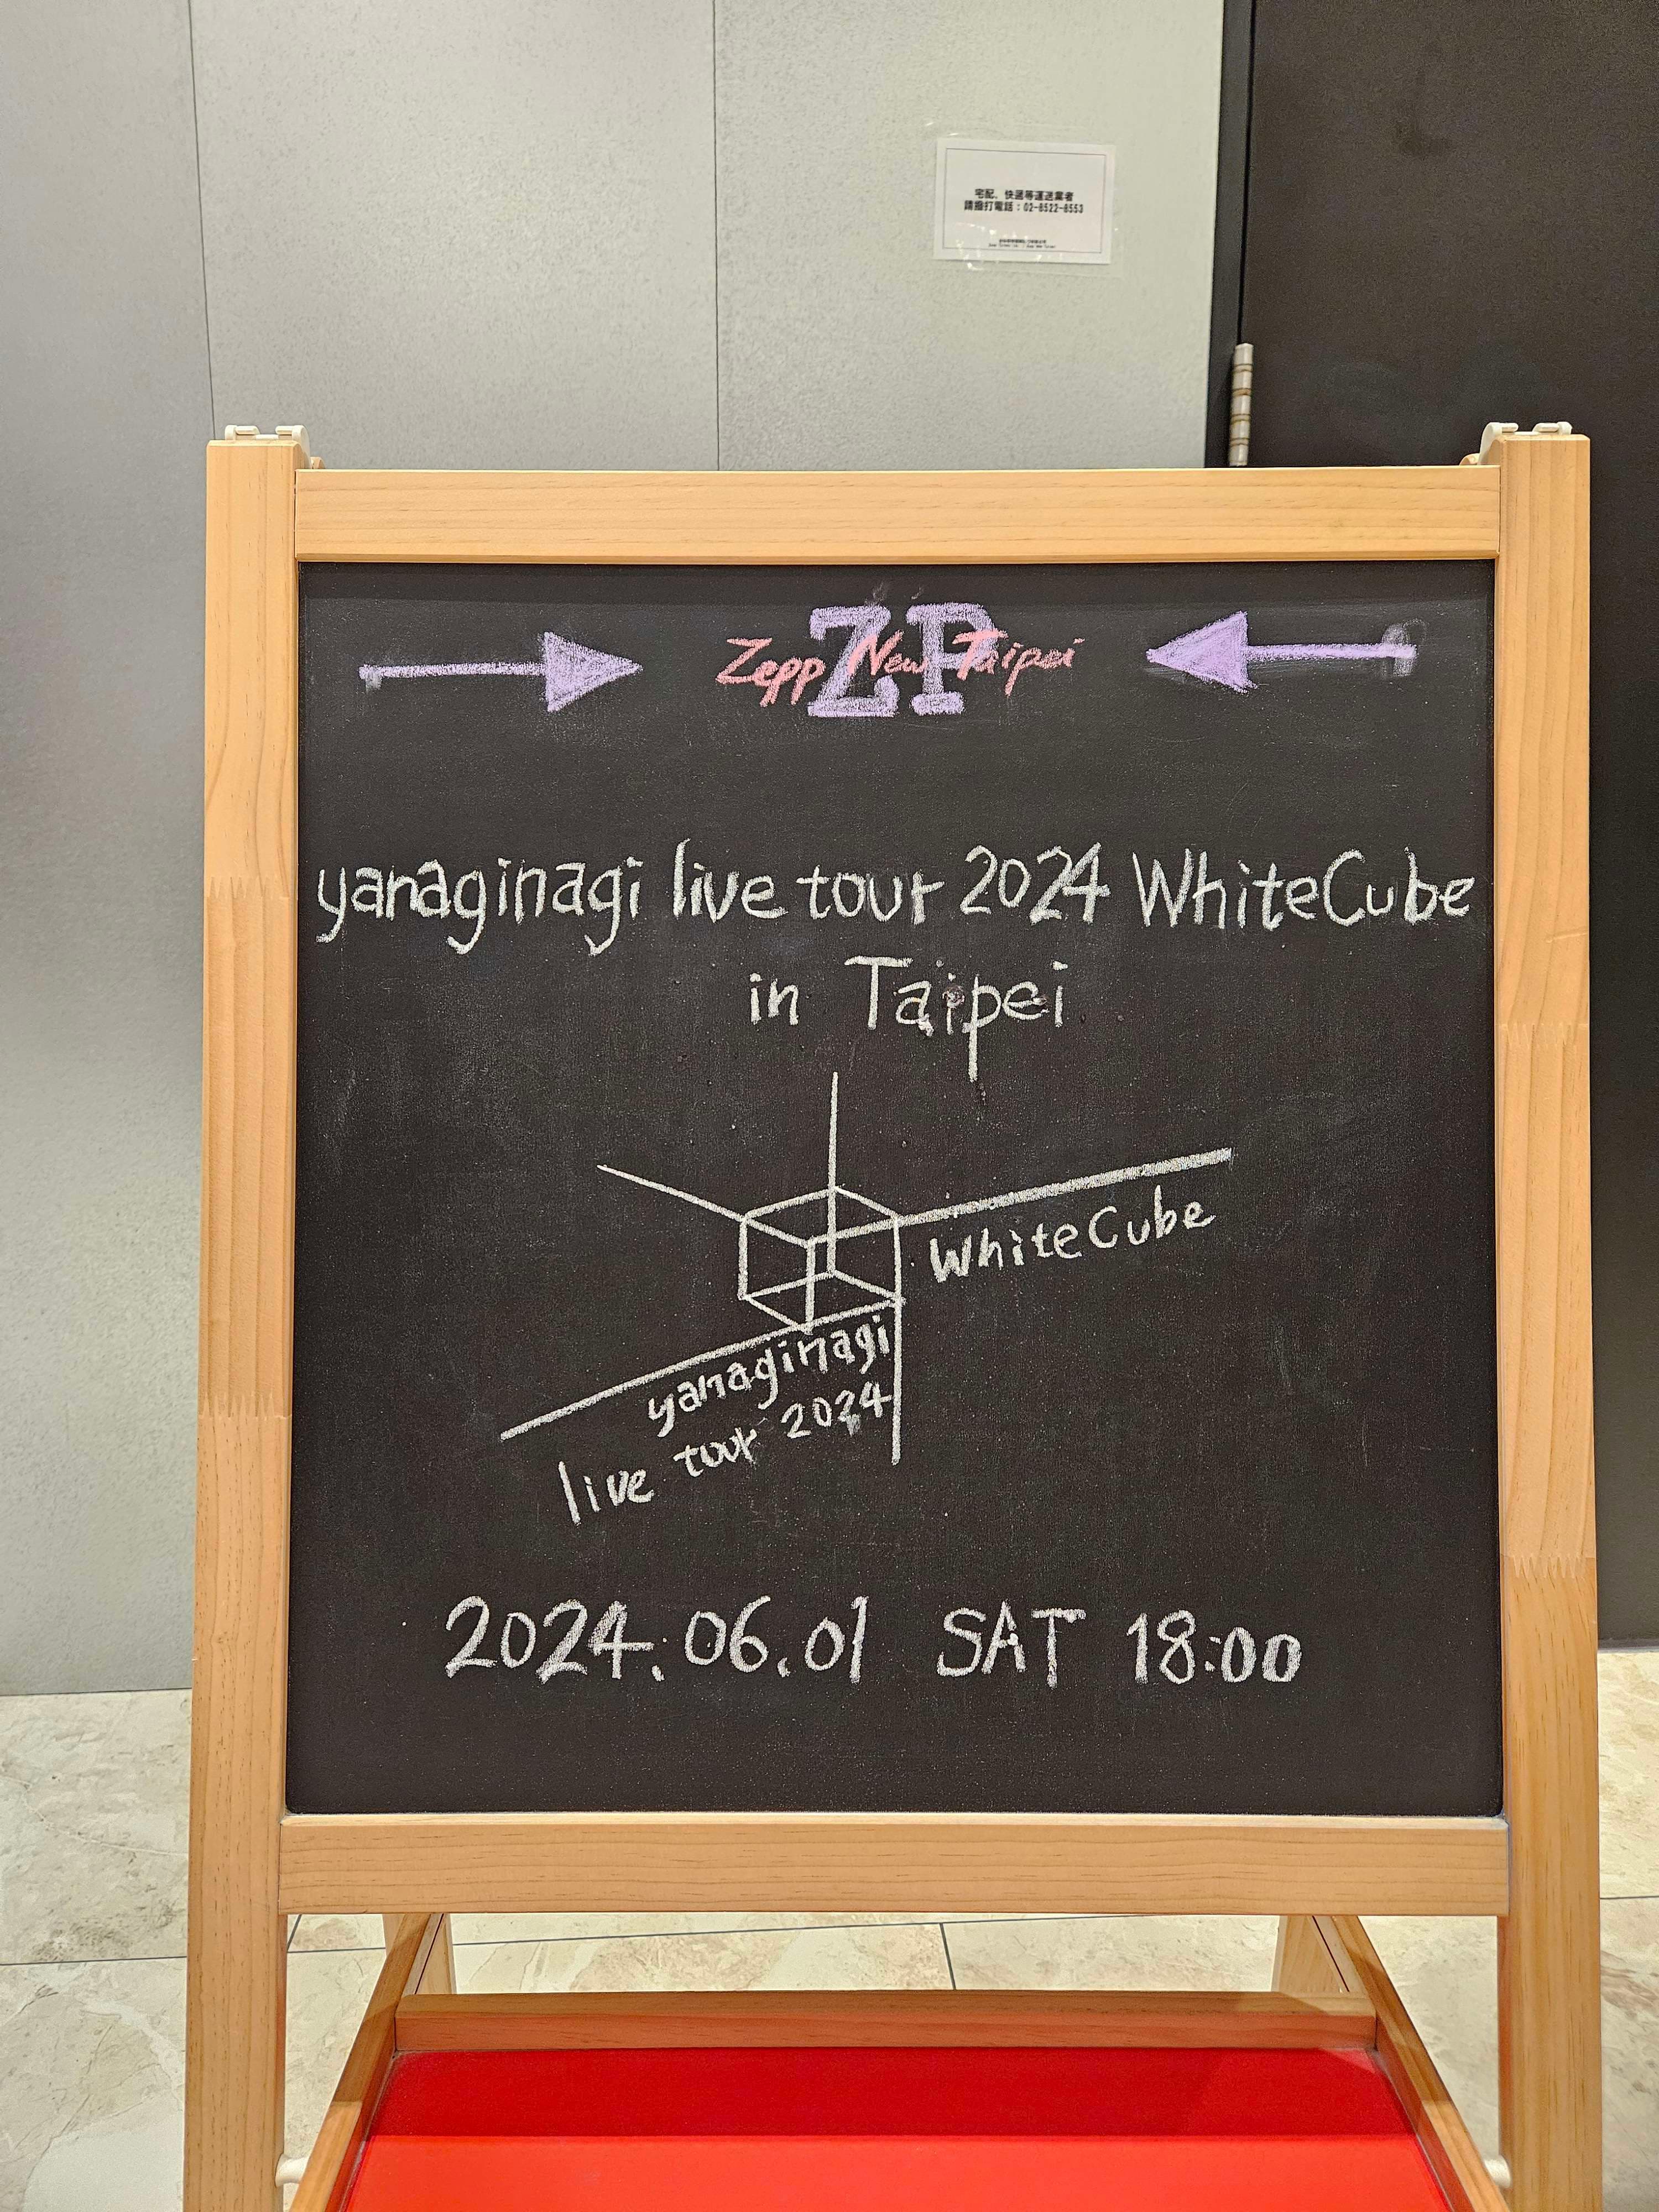 宅配、快遞等運送業者
請撥打電話：02-8522-8553
ZP
Zepp New Taipei
yanaginagi live tour 2024 WhiteCube
in Taipei
WhiteCube
yanaginagi
live tour 2024
2024.06.01 SAT 18:00